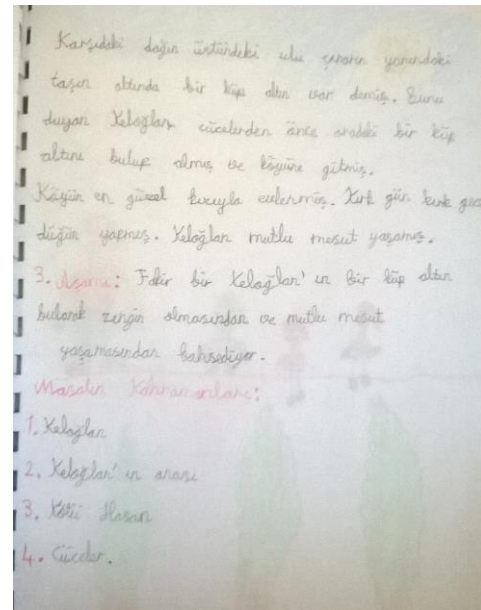 Karşıdaki dağın üstündeki ulu çınarın yanındaki
taşın altında bir küp altın var demiş. Bunu
duyan Keloğlan cücelerden önce oradaki bir küp
altını bulup almış ve köyüne gitmiş.
Köyün en güzel kızıyla evlenmiş. Kırk gün kırk gece
düğün yapmış. Keloğlan mutlu mesut yaşamış.
3. Aşama: Fakir bir Keloğlan'ın bir küp altın
bularak zengin olmasından ve mutlu mesut
yaşamasından bahsediyor.
Masalın Kahramanları:
1. Keloğlan
2. Keloğlan'ın anası
3. Kötü Hasan
4. Cüceler.